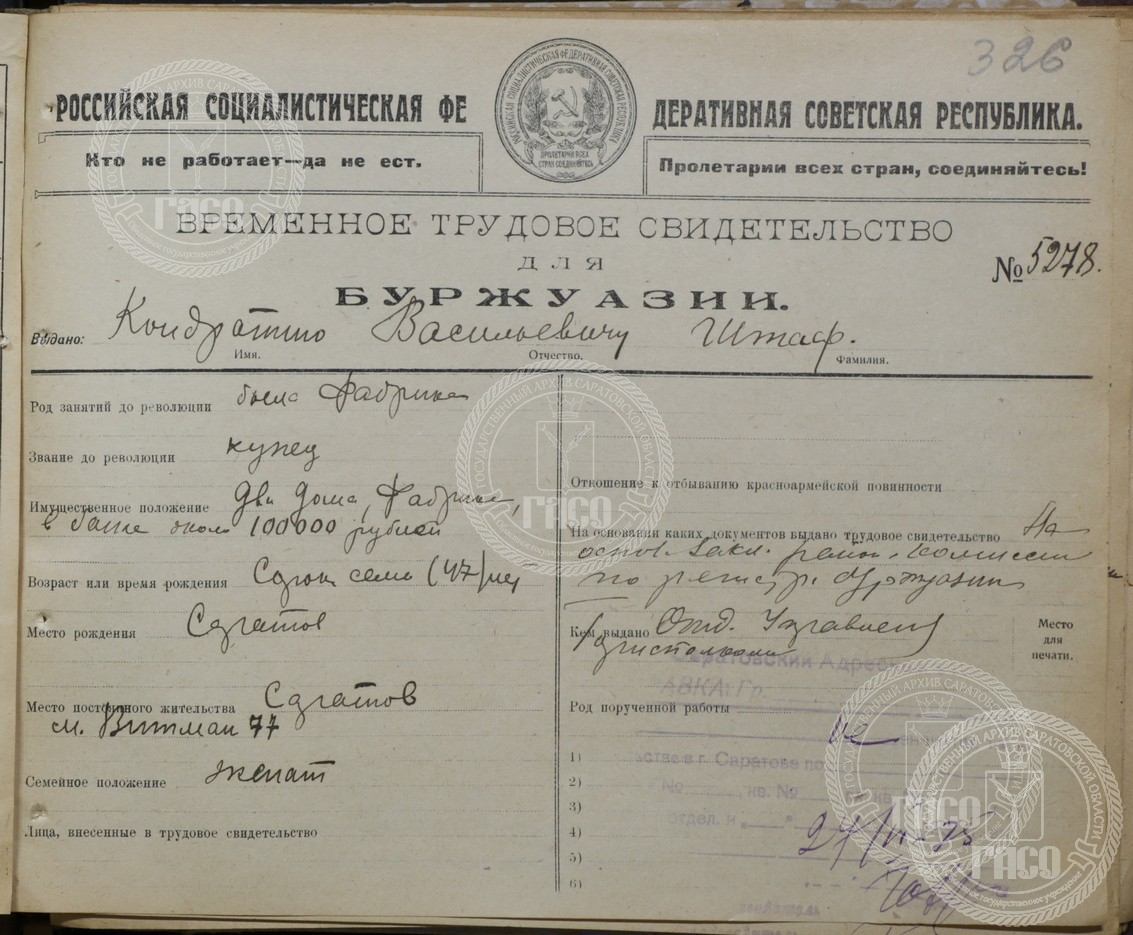 326
РОССИЙСКАЯ СОЦИАЛИСТИЧЕСКАЯ ФЕДЕРАТИВНАЯ СОВЕТСКАЯ РЕСПУБЛИКА.
РОССИЙСКАЯ СОЦИАЛИСТИЧЕСКАЯ ФЕДЕРАТИВНАЯ СОВЕТСКАЯ РЕСПУБЛИКА
ПРОЛЕТАРИИ ВСЕХ
СТРАН СОЕДИНЯЙТЕСЬ
Кто не работает—да не ест.
Пролетарии всех стран, соединяйтесь!
ВРЕМЕННОЕ ТРУДОВОЕ СВИДЕТЕЛЬСТВО
ДЛЯ
№ 5278.
БУРЖУАЗИИ.
Выдано: Кондратию Васильевичу Штаф.
Имя. Отчество. Фамилия.
Род занятий до революции была Фабрика
Звание до революции купец
Имущественное положение Два дома, Фабрика,
в банке около 100000 рублей
Возраст или время рождения Сорок семь (47) лет
Место рождения Саратов
Место постоянного жительства Саратов
77
Семейное положение женат
Лица, внесенные в трудовое свидетельство
Отношение к отбыванию красноармейской повинности
На основании каких документов выдано трудовое свидетельство На
основ. закл. район. комиссии
по регистр. буржуазии
Кем выдано Отд. Управлен
Место
для
печати.
Горисполкома
Саратовский Адресн
Род порученной работы
1)
2)
3)
4)
5)
6)
г. Саратове по
№ кв. №
Отдел. н
ГОСУДАРСТВЕННЫЙ АРХИВ САРАТОВСКОЙ ОБЛАСТИ
ГАСО
ГОСУДАРСТВЕННЫЙ АРХИВ САРАТОВСКОЙ ОБЛАСТИ
ГАСО
ГОСУДАРСТВЕННЫЙ АРХИВ САРАТОВСКОЙ ОБЛАСТИ
ГАСО
ГАСО